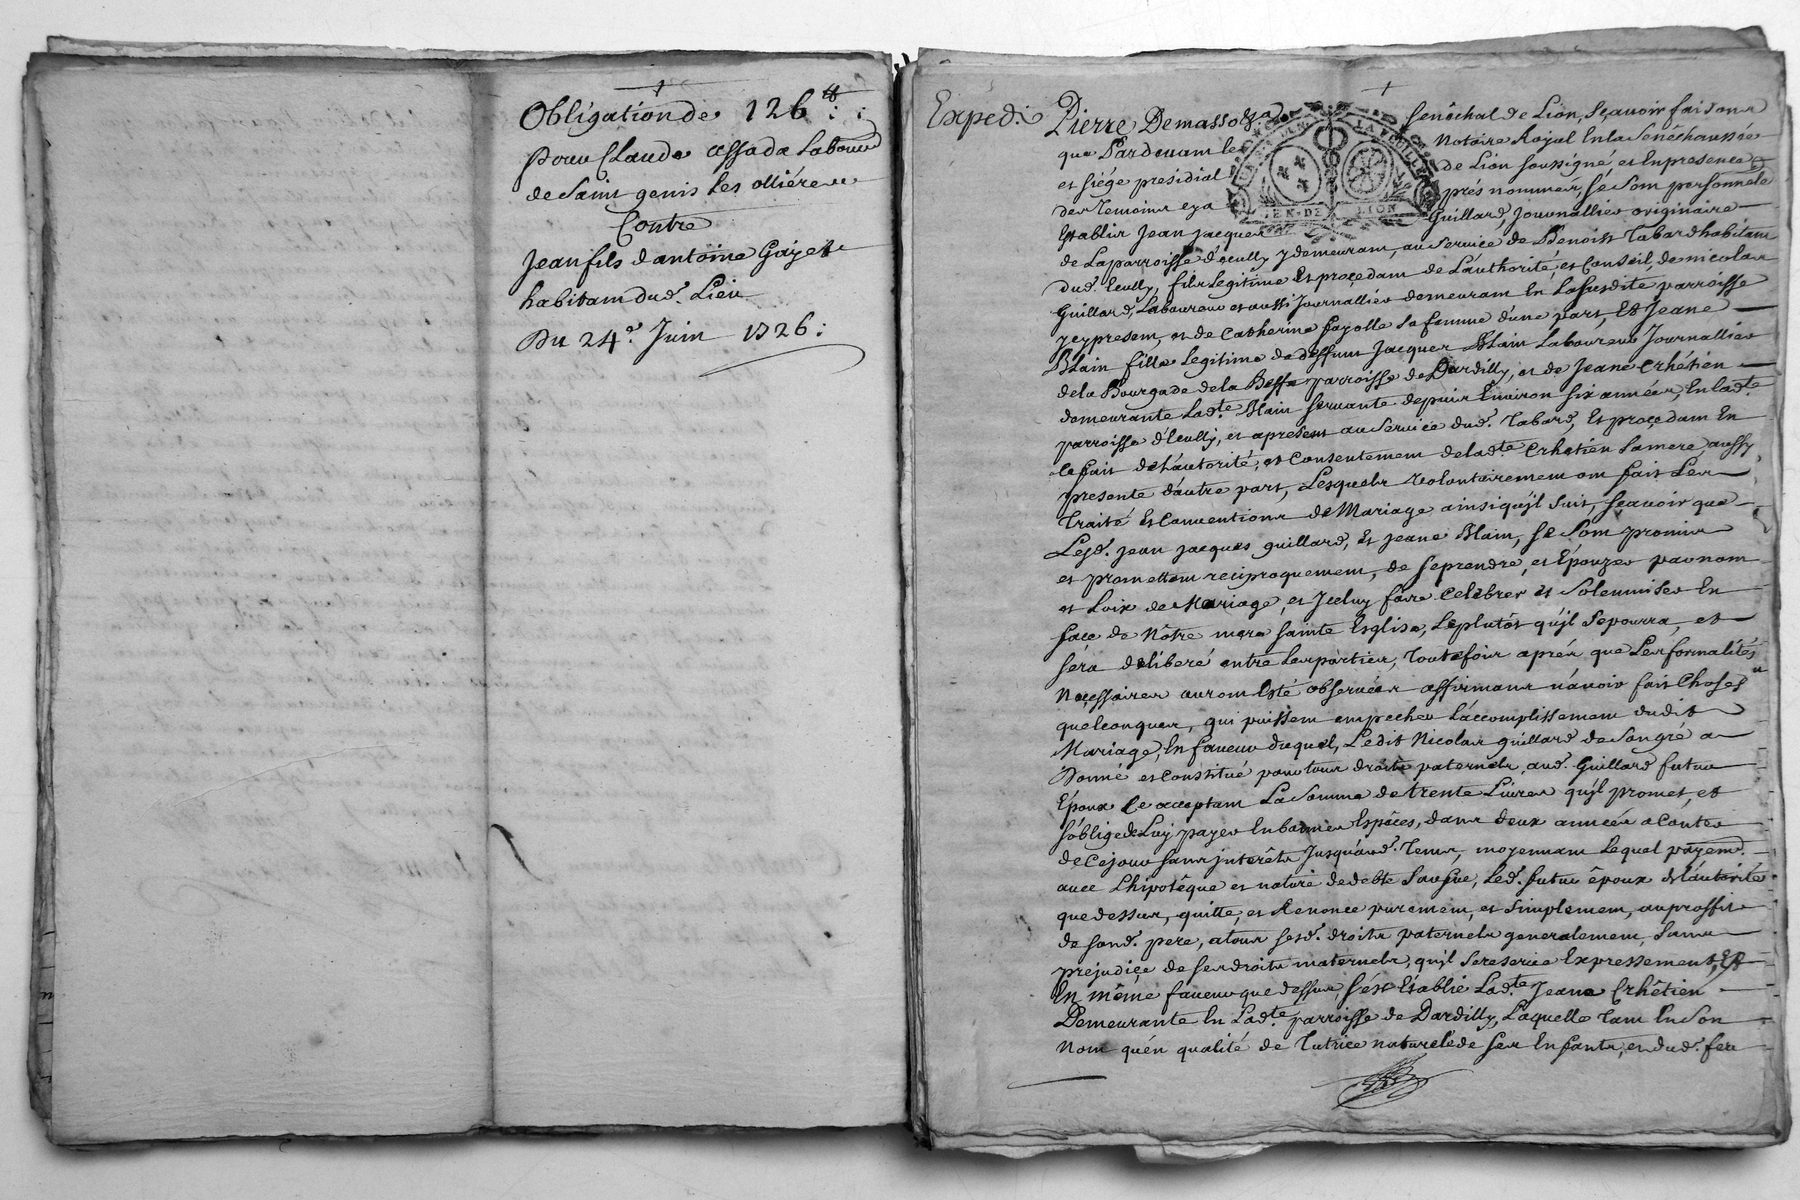 Obligation de 126ᵗᵗ :
Pour Claude assada Laboureur
de Saint genis les ollieres
Contre
Jean fils d'antoine Gayet
habitant dud. Lieu
Du 24e. Juin 1726 :
Expedi.
Pierre Demasso Senêchal de Lion, Sçavoir faisons
que Pardevant le Notaire Royal En la Senêchaussée
et siége presidial de Lion soussigné et En presence
des Temoins cy a prés nommes, se sont personnele
Establis Jean Jacques Guillard, Journallier originaire
de La parroisse d'écully y demeurant, au service de Benoist Tabard habitant
dud. Ecully, fils Legitime Et proçedant de L'authorité, et Conseil, de nicolas
Guillard, Laboureur et aussi Journallier demeurant En La susdite parroisse
y cy present, et de Catherine fayolle sa femme d'une part, Et Jeane
Blain fille Legitime de deffunt Jacques Blain Laboureur Journallier
de la Bourgade de la Beffe parroisse de Dardilly, et de Jeane Crhétien
demeurante Lad.te Blain servante depuis Environ six années, En lad.te
parroisse d'Ecully, et apresent au service dud. Tabard, Et proçedant En
ce fait de L'autorité, et Consentement de lad.te Crhetien sa mere, aussy
presente d'autre part, Lesquels volontairement ont fait Les
Traité Et Conventions de Mariage ainsi qu'jl suit, sçavoir que
Lesd. jean jacques guillard, Et jeane Blain, se sont promis
et promettent reciproquement, de se prendre, et Épouzer par nom
et Loix de Mariage, et Jceluy faire Celebrer et Solemniser En
face de Nôtre mere sainte Esglise, Le plutôt qu'jl se pourra, et
séra deliberé entre les parties, Toutefois aprés que Les formalités
Necessaires auront Esté observées affirmans n'avoir fait Choses
quelconques, qui puissent empecher L'accomplissement dudit
Mariage, En faveur duquel, Ledit Nicolas guillard de son gré a
Donné et Constitué pour tous droits paternels, aud. Guillard futur
Époux ce acceptant La Somme de trente Livres qu'jl promet, et
s'oblige de Luy payer En bonnes Espêces, dans deux années a Conter
de Ce jour sans jnterêts Jusqu'aud. Tems, moyennant Lequel payemt.
avec L'hipotêque et nature de debte sus fue, Led. futur êpoux de L'autorité
que dessus, quitte, et Renonce purement, et simplement, au proffit
de sond. pere, a tous sesd. droits paternels generalement, sans
prejudiçe de ses droits maternels, qu'jl se reserve Expressement, Et
En mêine faveur que dessus, s'est Établie Lad.te Jeane Crhêtien
Demeurante En Lad.te parroisse de Dardilly, Laquelle tant En son
Nom qu'én qualité de Tutrice naturele de ses Enfants, et dud. feu